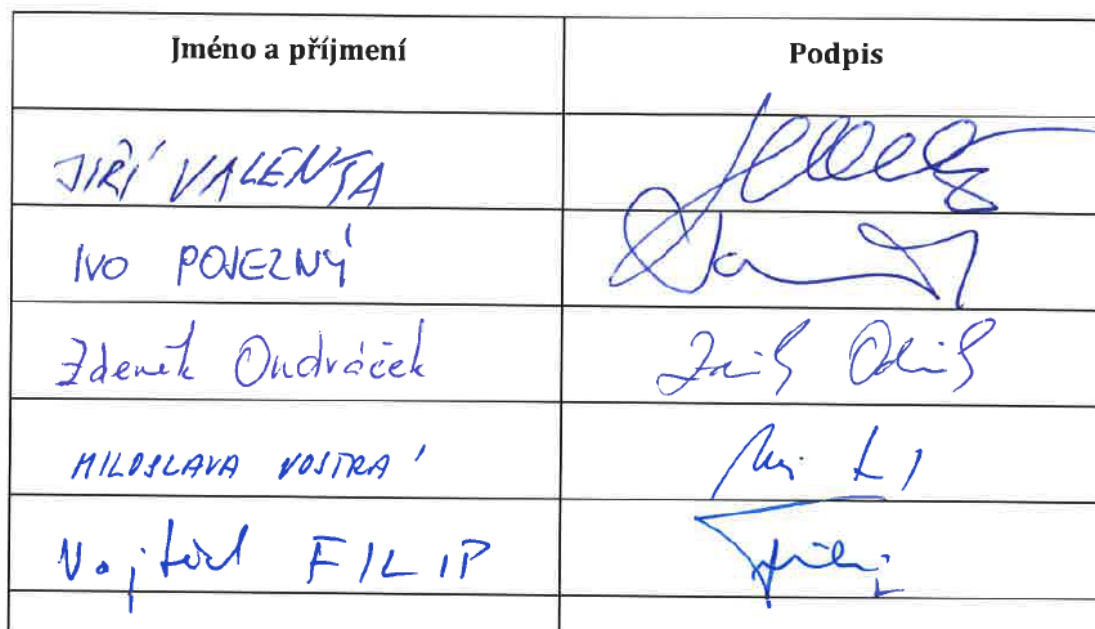 Jméno a příjmení Podpis
JIŘÍ VALENTA
IVO POJEZNÝ
Zdeněk Ondráček
MILOSLAVA VOSTRÁ
Vojtěch FILIP